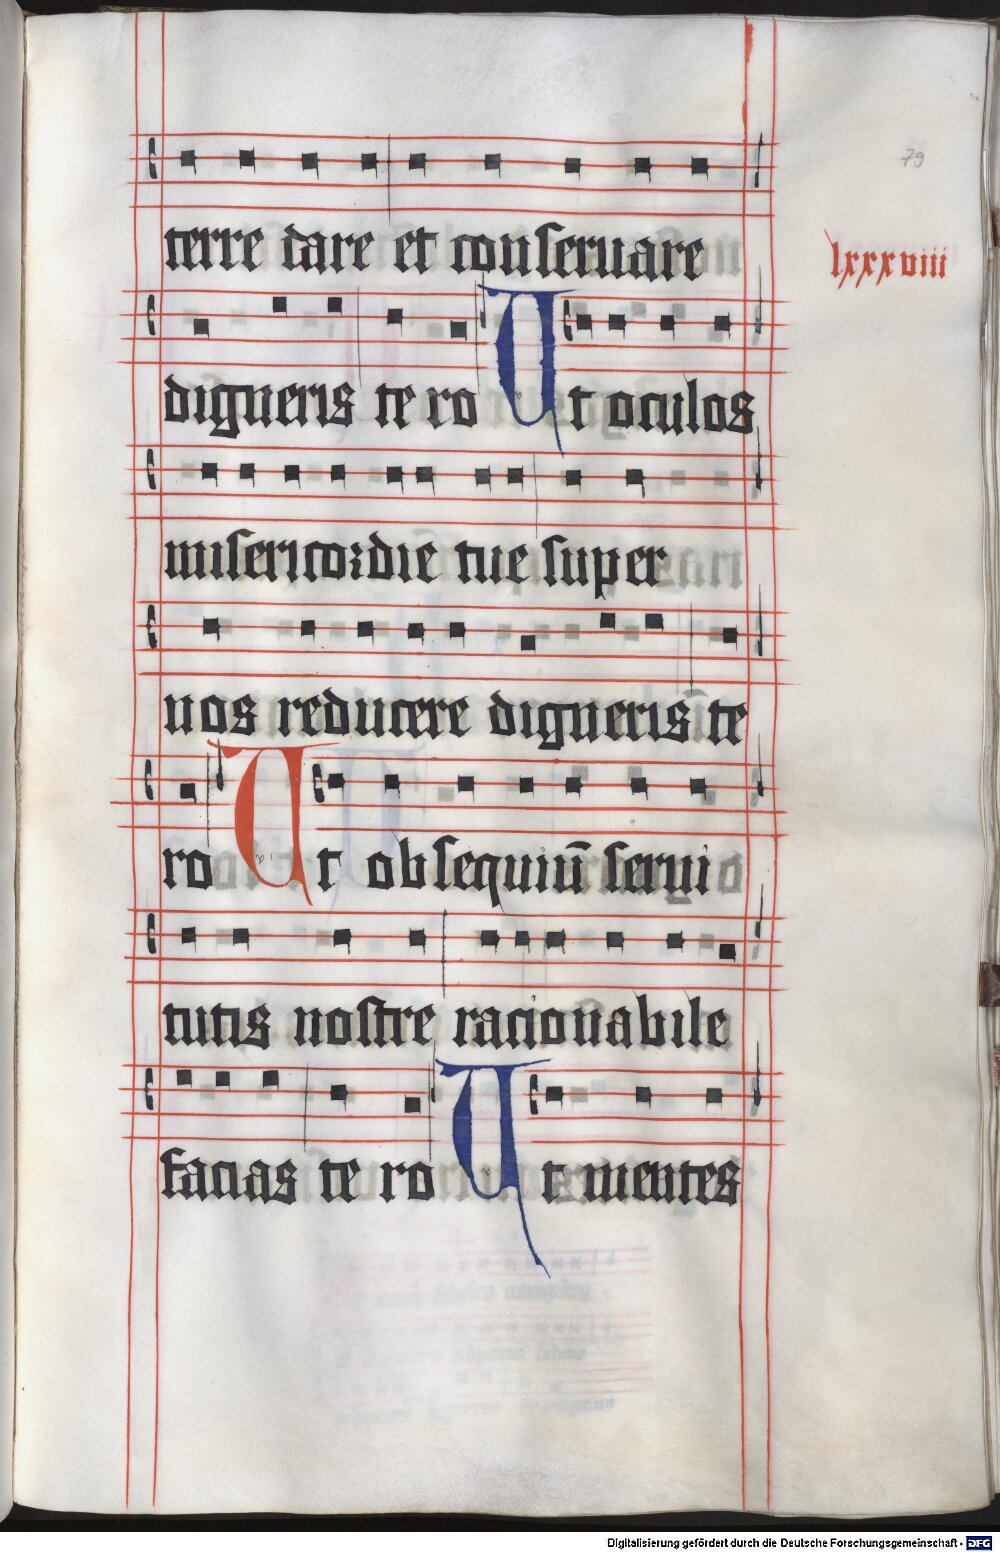 79
terre dare et conseruare
lxxxviii
digneris te ro Ut oculos
misericordie tue super
nos reducere digneris te
ro Ut obsequiu̅ serui
tutis nostre racionabile
facias te ro Ut mentes
Digitalisierung gefördert durch die Deutsche Forschungsgemeinschaft - DFG